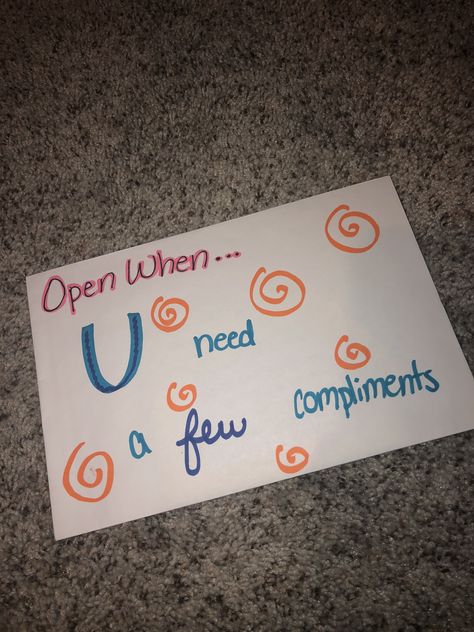 Open When...
U need
a few compliments